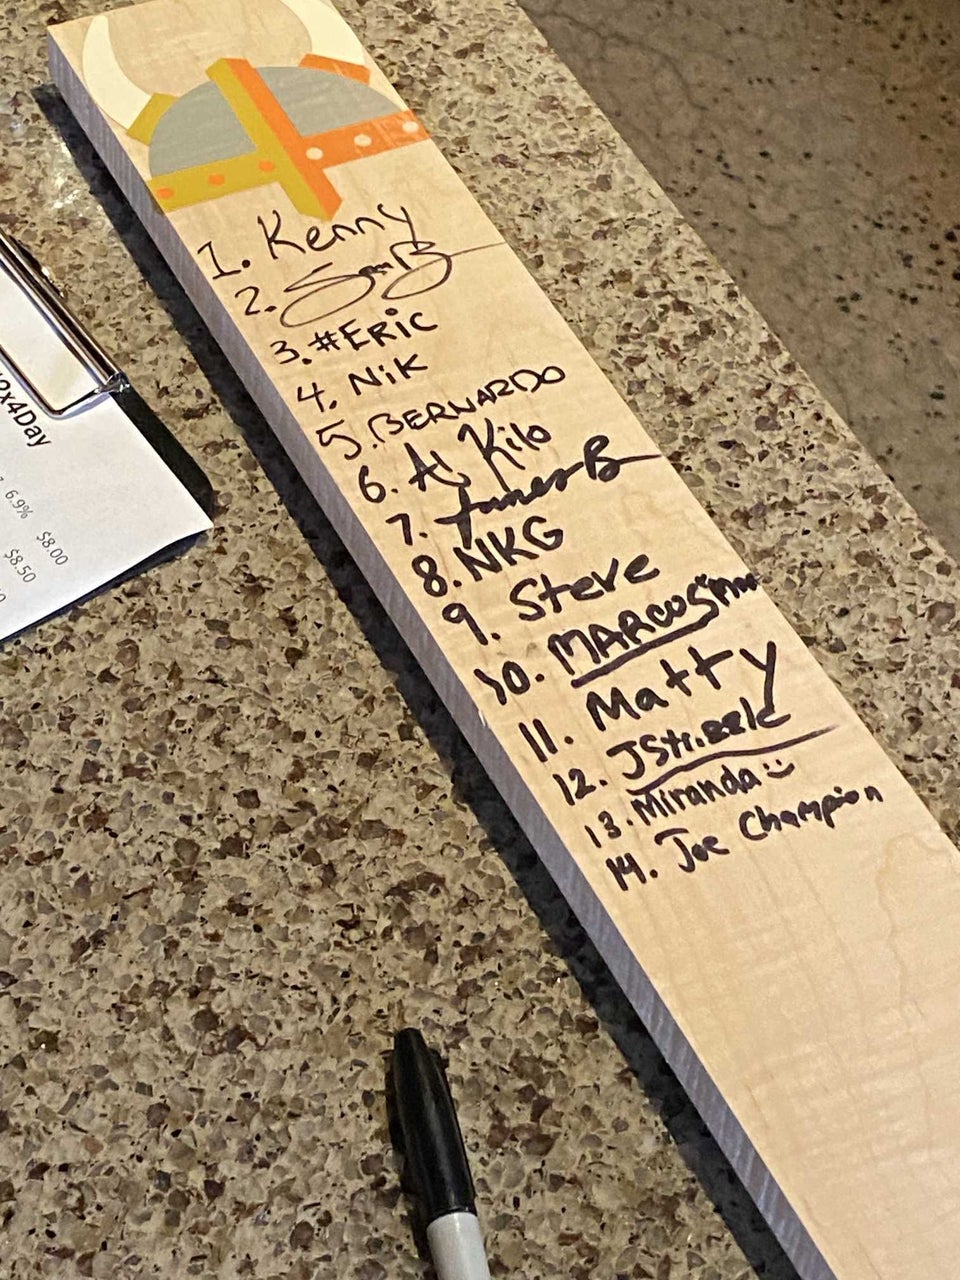 1. Kenny
2. Sam B
3. #ERiC
4. NiK
5. BERNARDO
6. Al Kilo
7. James B
8. NKG
9. Steve
10. MARCUS
11. Matty
12. JStizzle
13. Miranda :)
14. Joe Champion
2x4Day
6.9% $8.00
$8.50